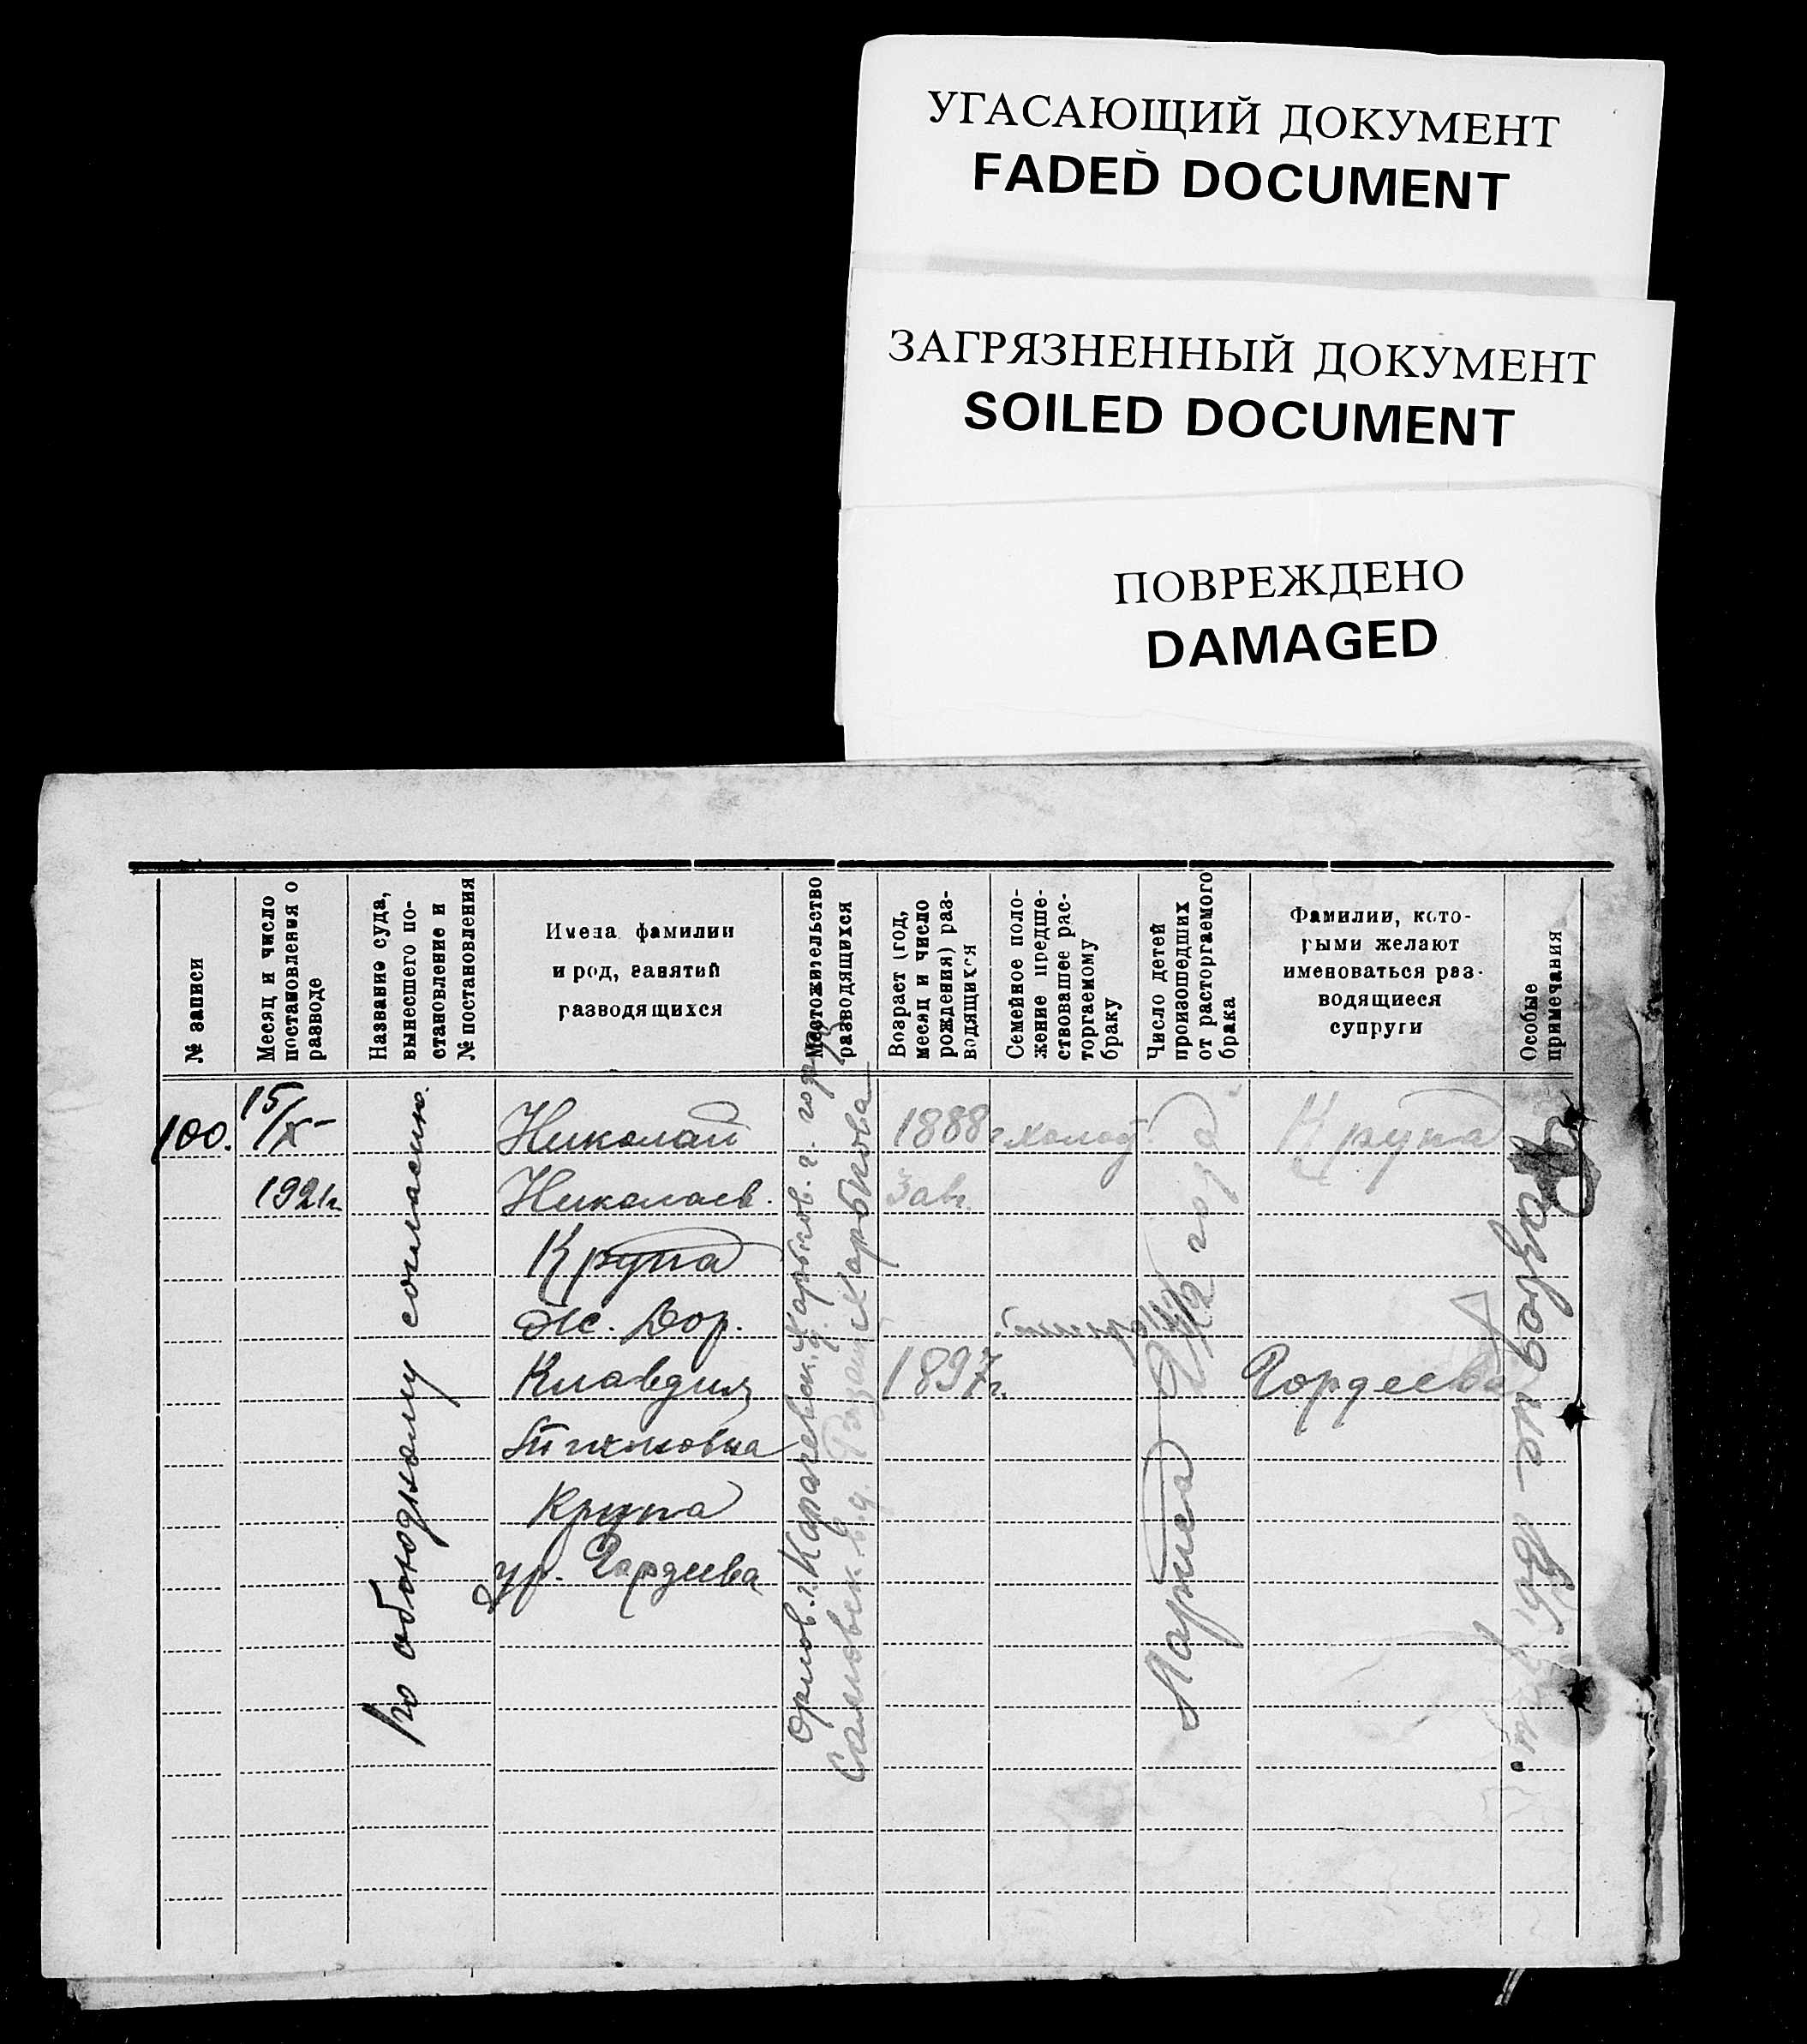 УГАСАЮЩИЙ ДОКУМЕНТ
FADED DOCUMENT
ЗАГРЯЗНЕННЫЙ ДОКУМЕНТ
SOILED DOCUMENT
ПОВРЕЖДЕНО
DAMAGED
№ записи
Месяц и число
постановления о
разводе
Название суда,
вынесшего по-
становление и
№ постановления
Имена фамилии
и род, занятий
разводящихся
Местожительство
разводящихся
Возраст (год,
месяц и число
рождения) раз-
водящихся
Семейное поло-
жение предше-
ствовавшее рас-
торгаемому
браку
Число детей
произошедших
от расторгаемого
брака
Фамилии, кото-
рыми желают
именоваться раз-
водящиеся
супруги
Особые
примечания
100.
15/X-
1921г
По обоюдному согласию.
Николай
Николаев.
Крупа
Ж. Дор.
Клавдия
Тихоновна
Крупа
ур. Гордеева
Орлов. г. Карачевск.
1888г
3 авг.
1897г.
холост
Лариса
Крупа
Гордеева